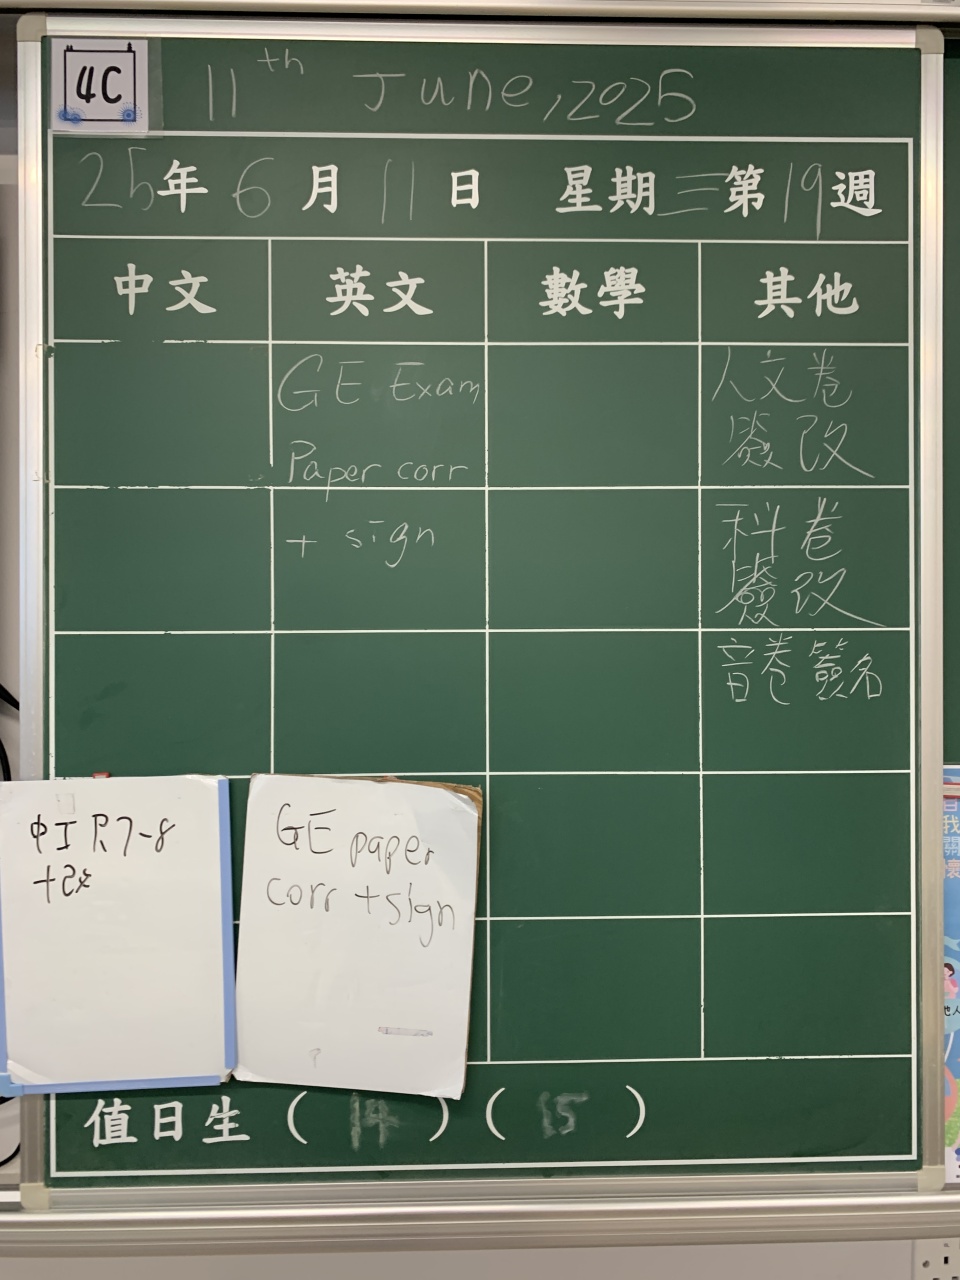 4C
11th June, 2025
25年6月11日 星期三第19週
中文 英文 數學 其他
GE Exam
Paper corr
+ sign
人文卷
簽改
科卷
簽改
音卷簽名
中工 P.7-8
+改
GE paper
corr + sign
值日生 ( 14 ) ( 15 )
我
關
懷
他人